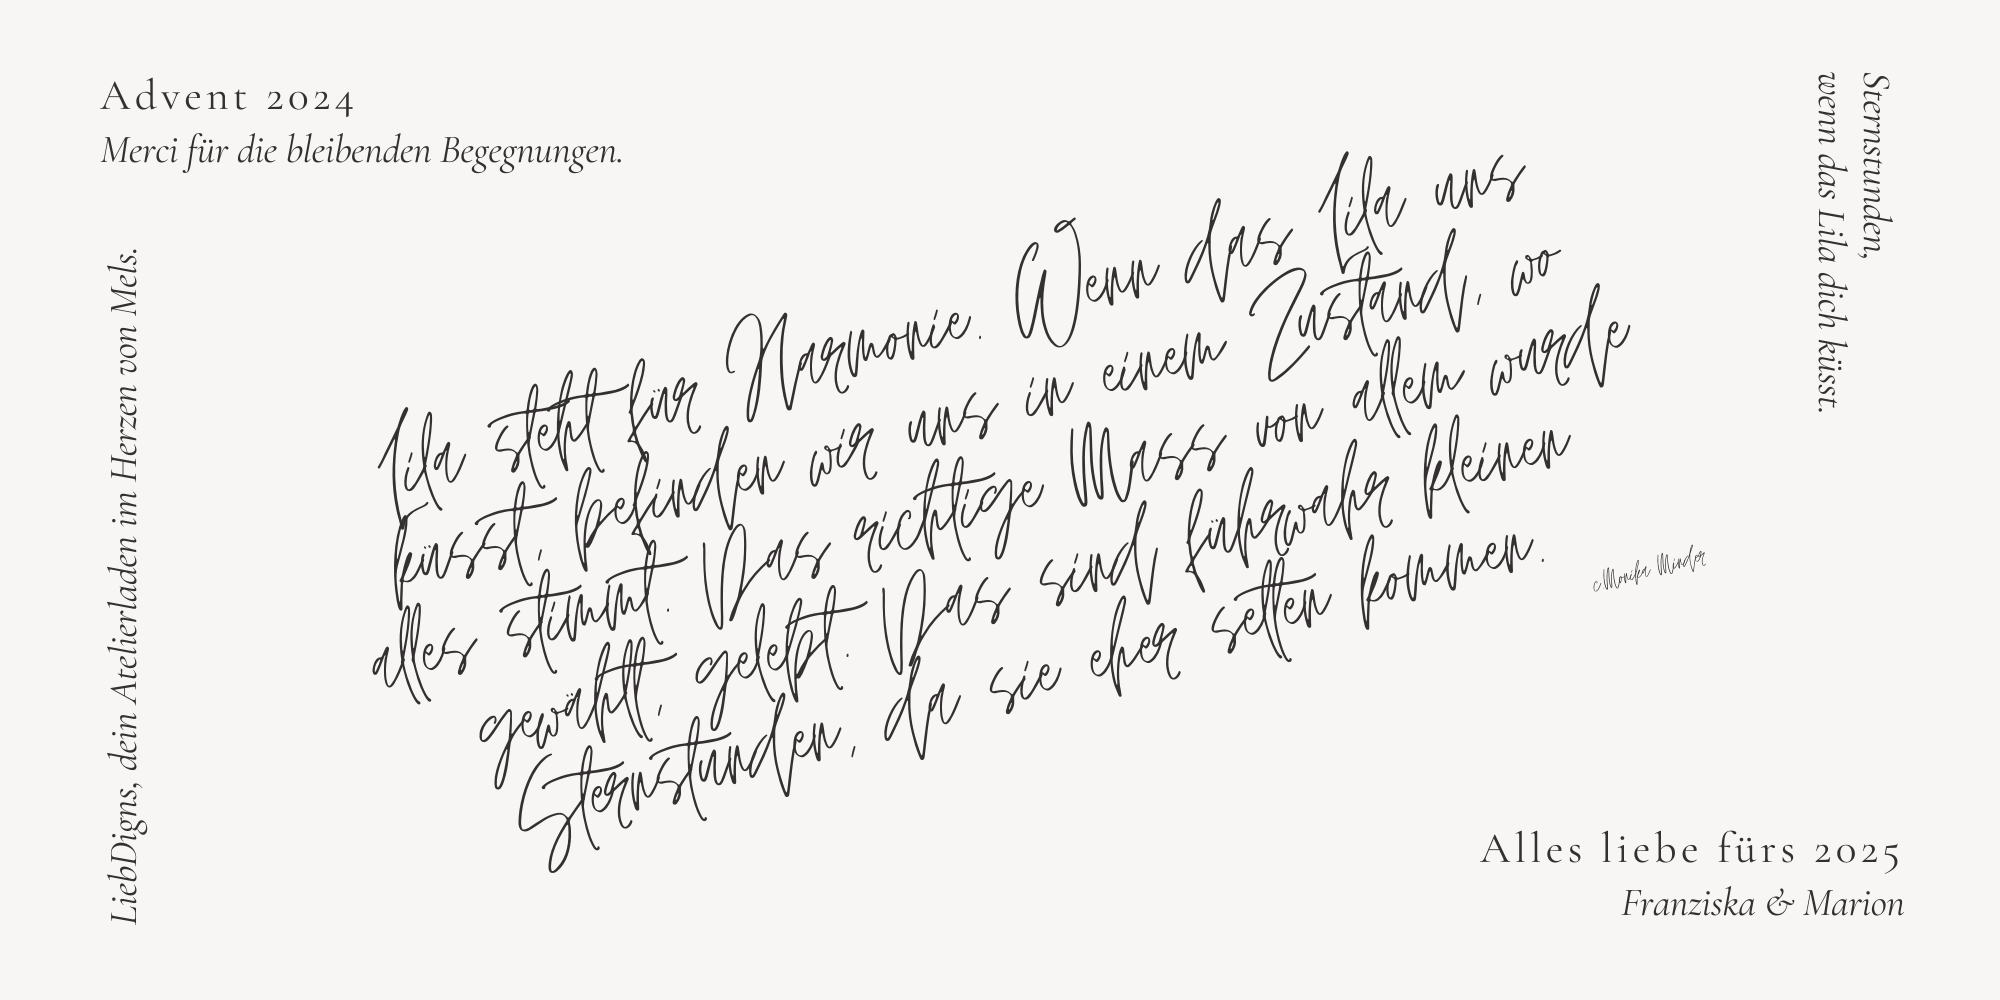 Advent 2024
Merci für die bleibenden Begegnungen.
Sternstunden,
wenn das Lila dich küsst.
LiebDigns, dein Atelierladen im Herzen von Mels.
Lila steht für Harmonie. Wenn das Lila uns
küsst, befinden wir uns in einem Zustand, wo
alles stimmt. Das richtige Mass von allem wurde
gewählt, gelebt. Das sind führwahr kleinen
Sternstunden, da sie eher selten kommen.
c Monika Minder
Alles liebe fürs 2025
Franziska & Marion